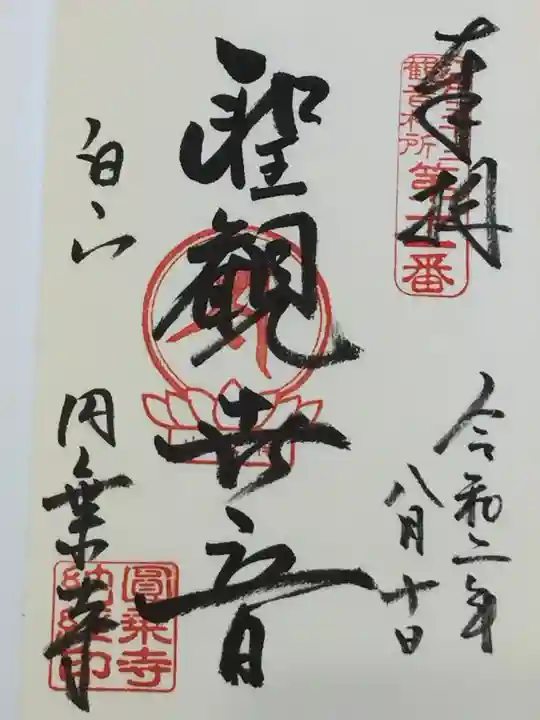 奉拝
観音札所
番
令和二年
八月十日
聖観世音
白山
円乗寺
圓乗寺
納経印